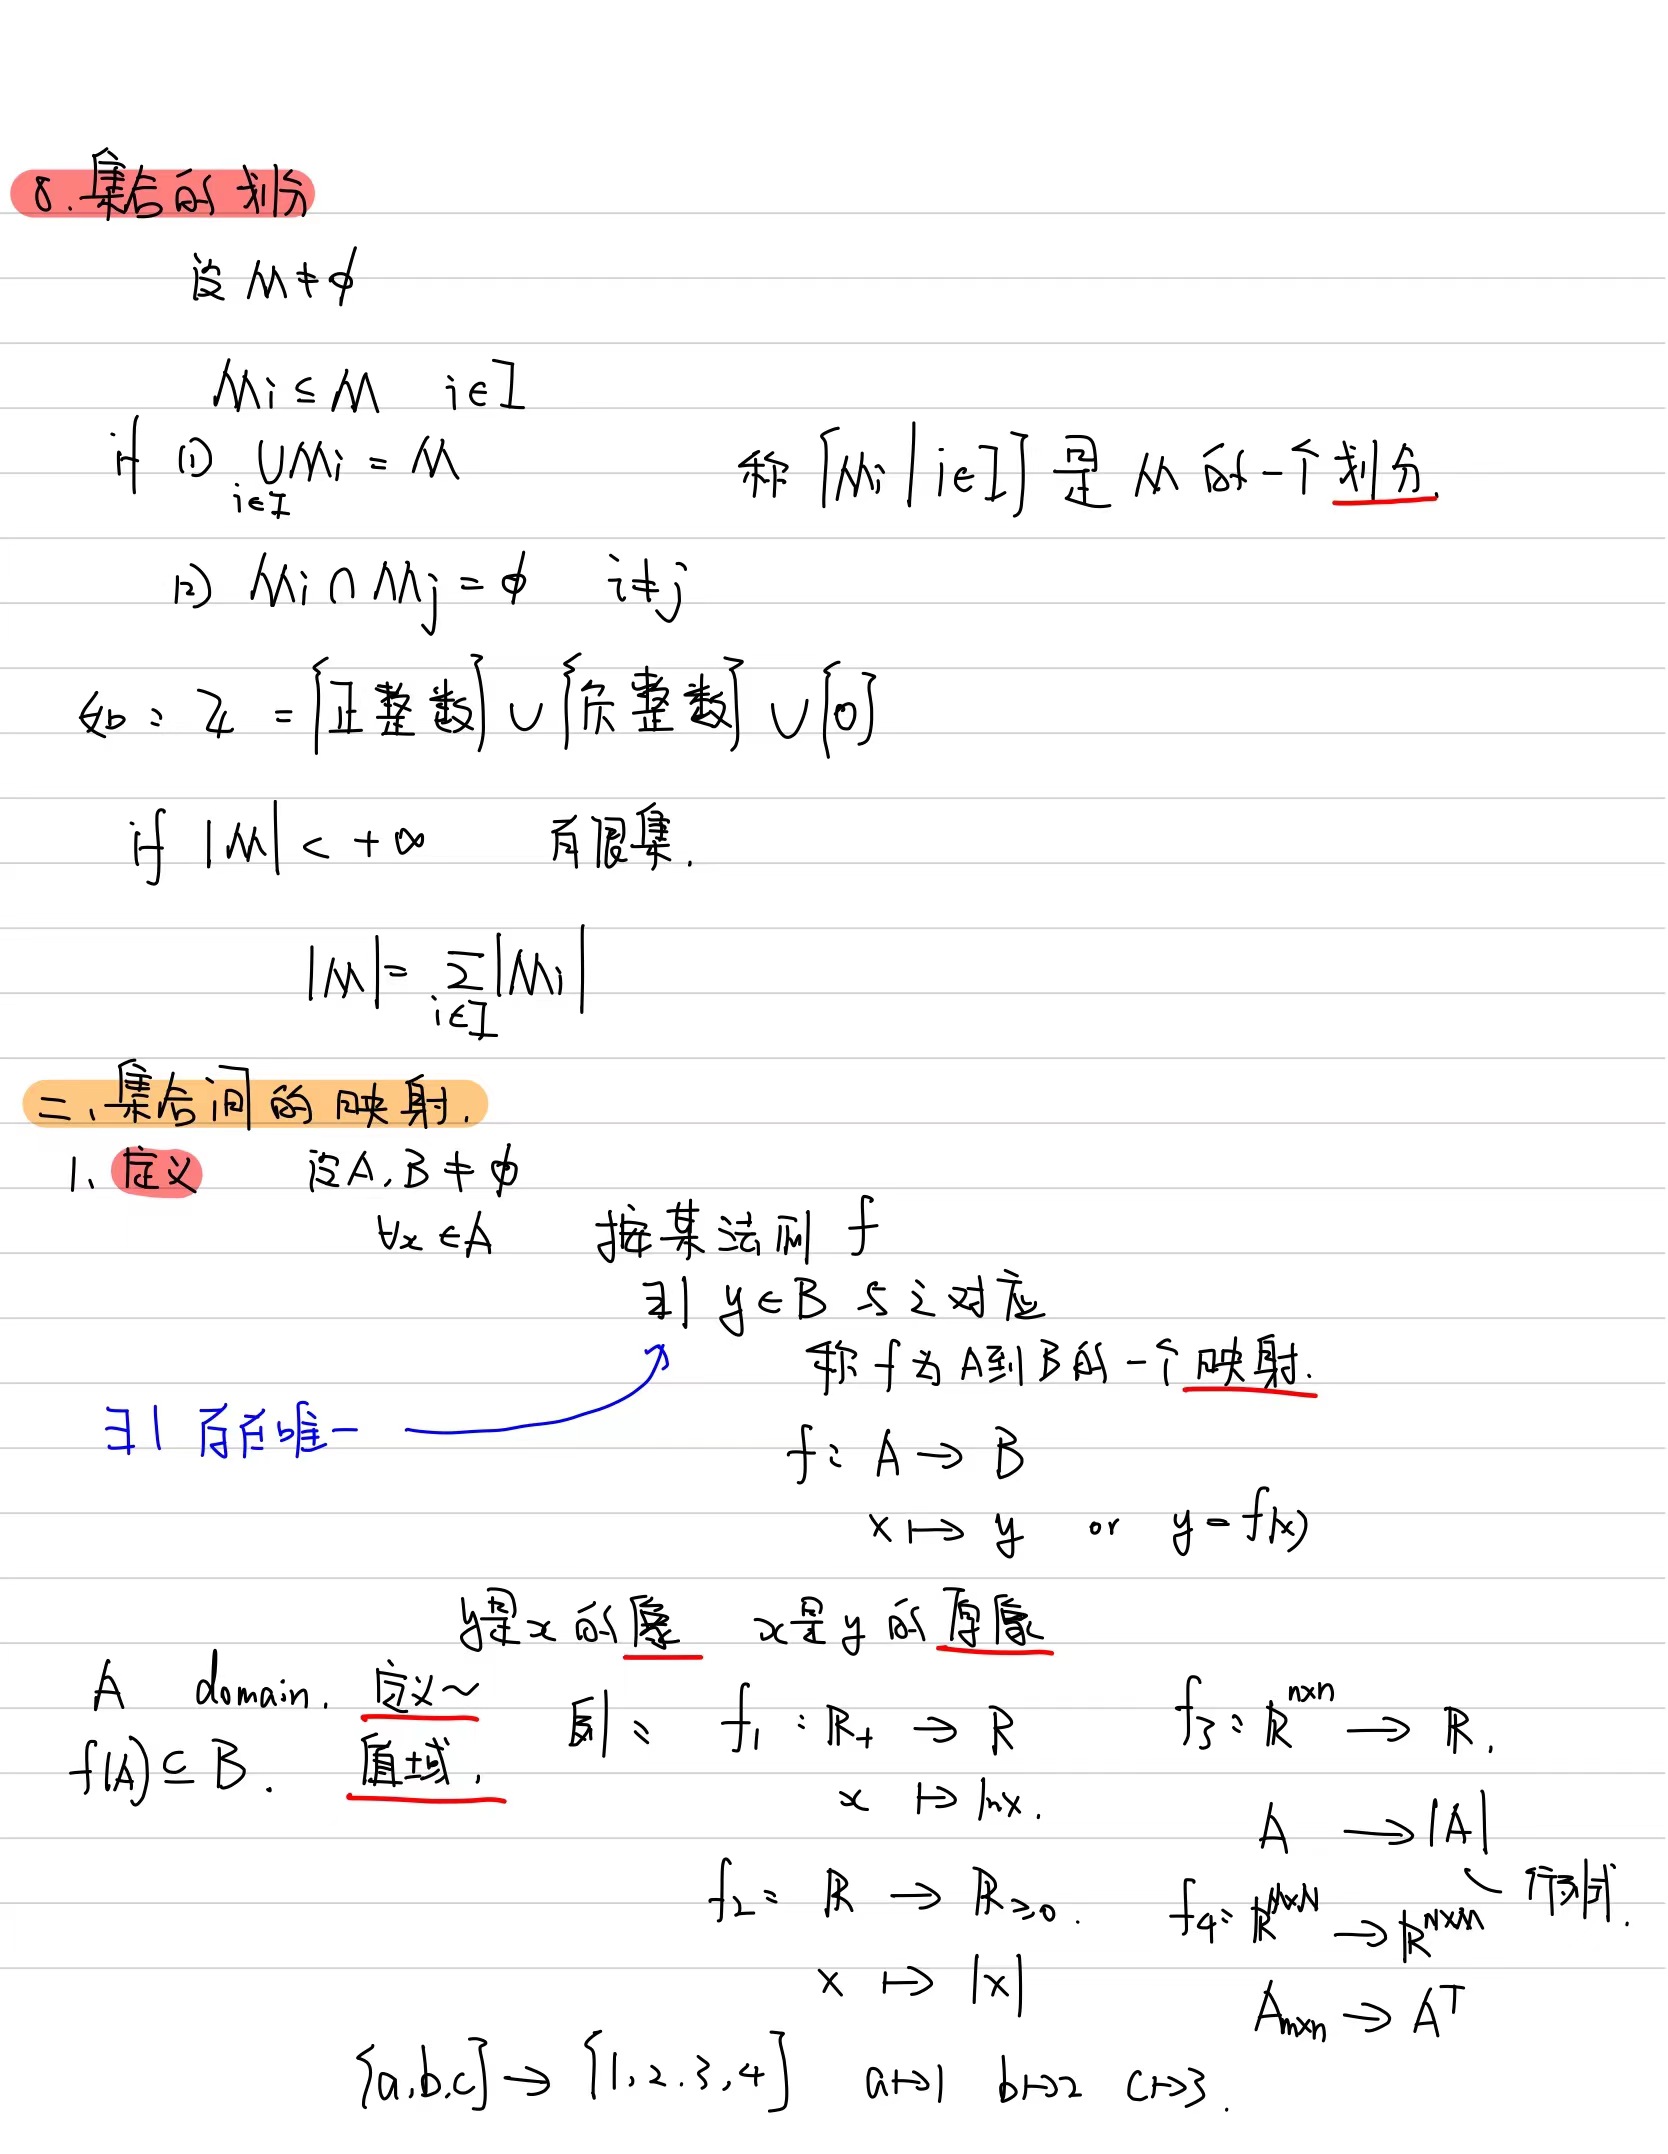 8.集合的划分
设 M≠∅
Mi⊆M i∈I
if (1) ∪Mi=M
i∈I
称{Mi|i∈I}是M的一个划分.
(2) Mi∩Mj=∅ i≠j
如:Z={正整数}∪{负整数}∪{0}
if |M|<+∞ 有限集.
|M|=Σ|Mi|
i∈I
二、集合间的映射.
1、定义 设A,B≠∅
∀x∈A 按某法则 f
∃| y∈B 与之对应
称f为A到B的一个映射.
∃| 存在唯一
f: A→B
x↦y or y=f(x)
y是x的像 x是y的原像
A domain. 定义~
f(A)⊆B. 值域.
则: f₁:R₊→R
x↦lnx.
f₂: R→R≥0.
x↦|x|
f₃:Rⁿˣⁿ→R.
A→|A|
行列式.
f₄:Rᴹˣᴺ→Rᴺˣᴹ
Aₘₓₙ→Aᵀ
{a,b,c}→{1,2.3,4} a↦1 b↦2 c↦3.